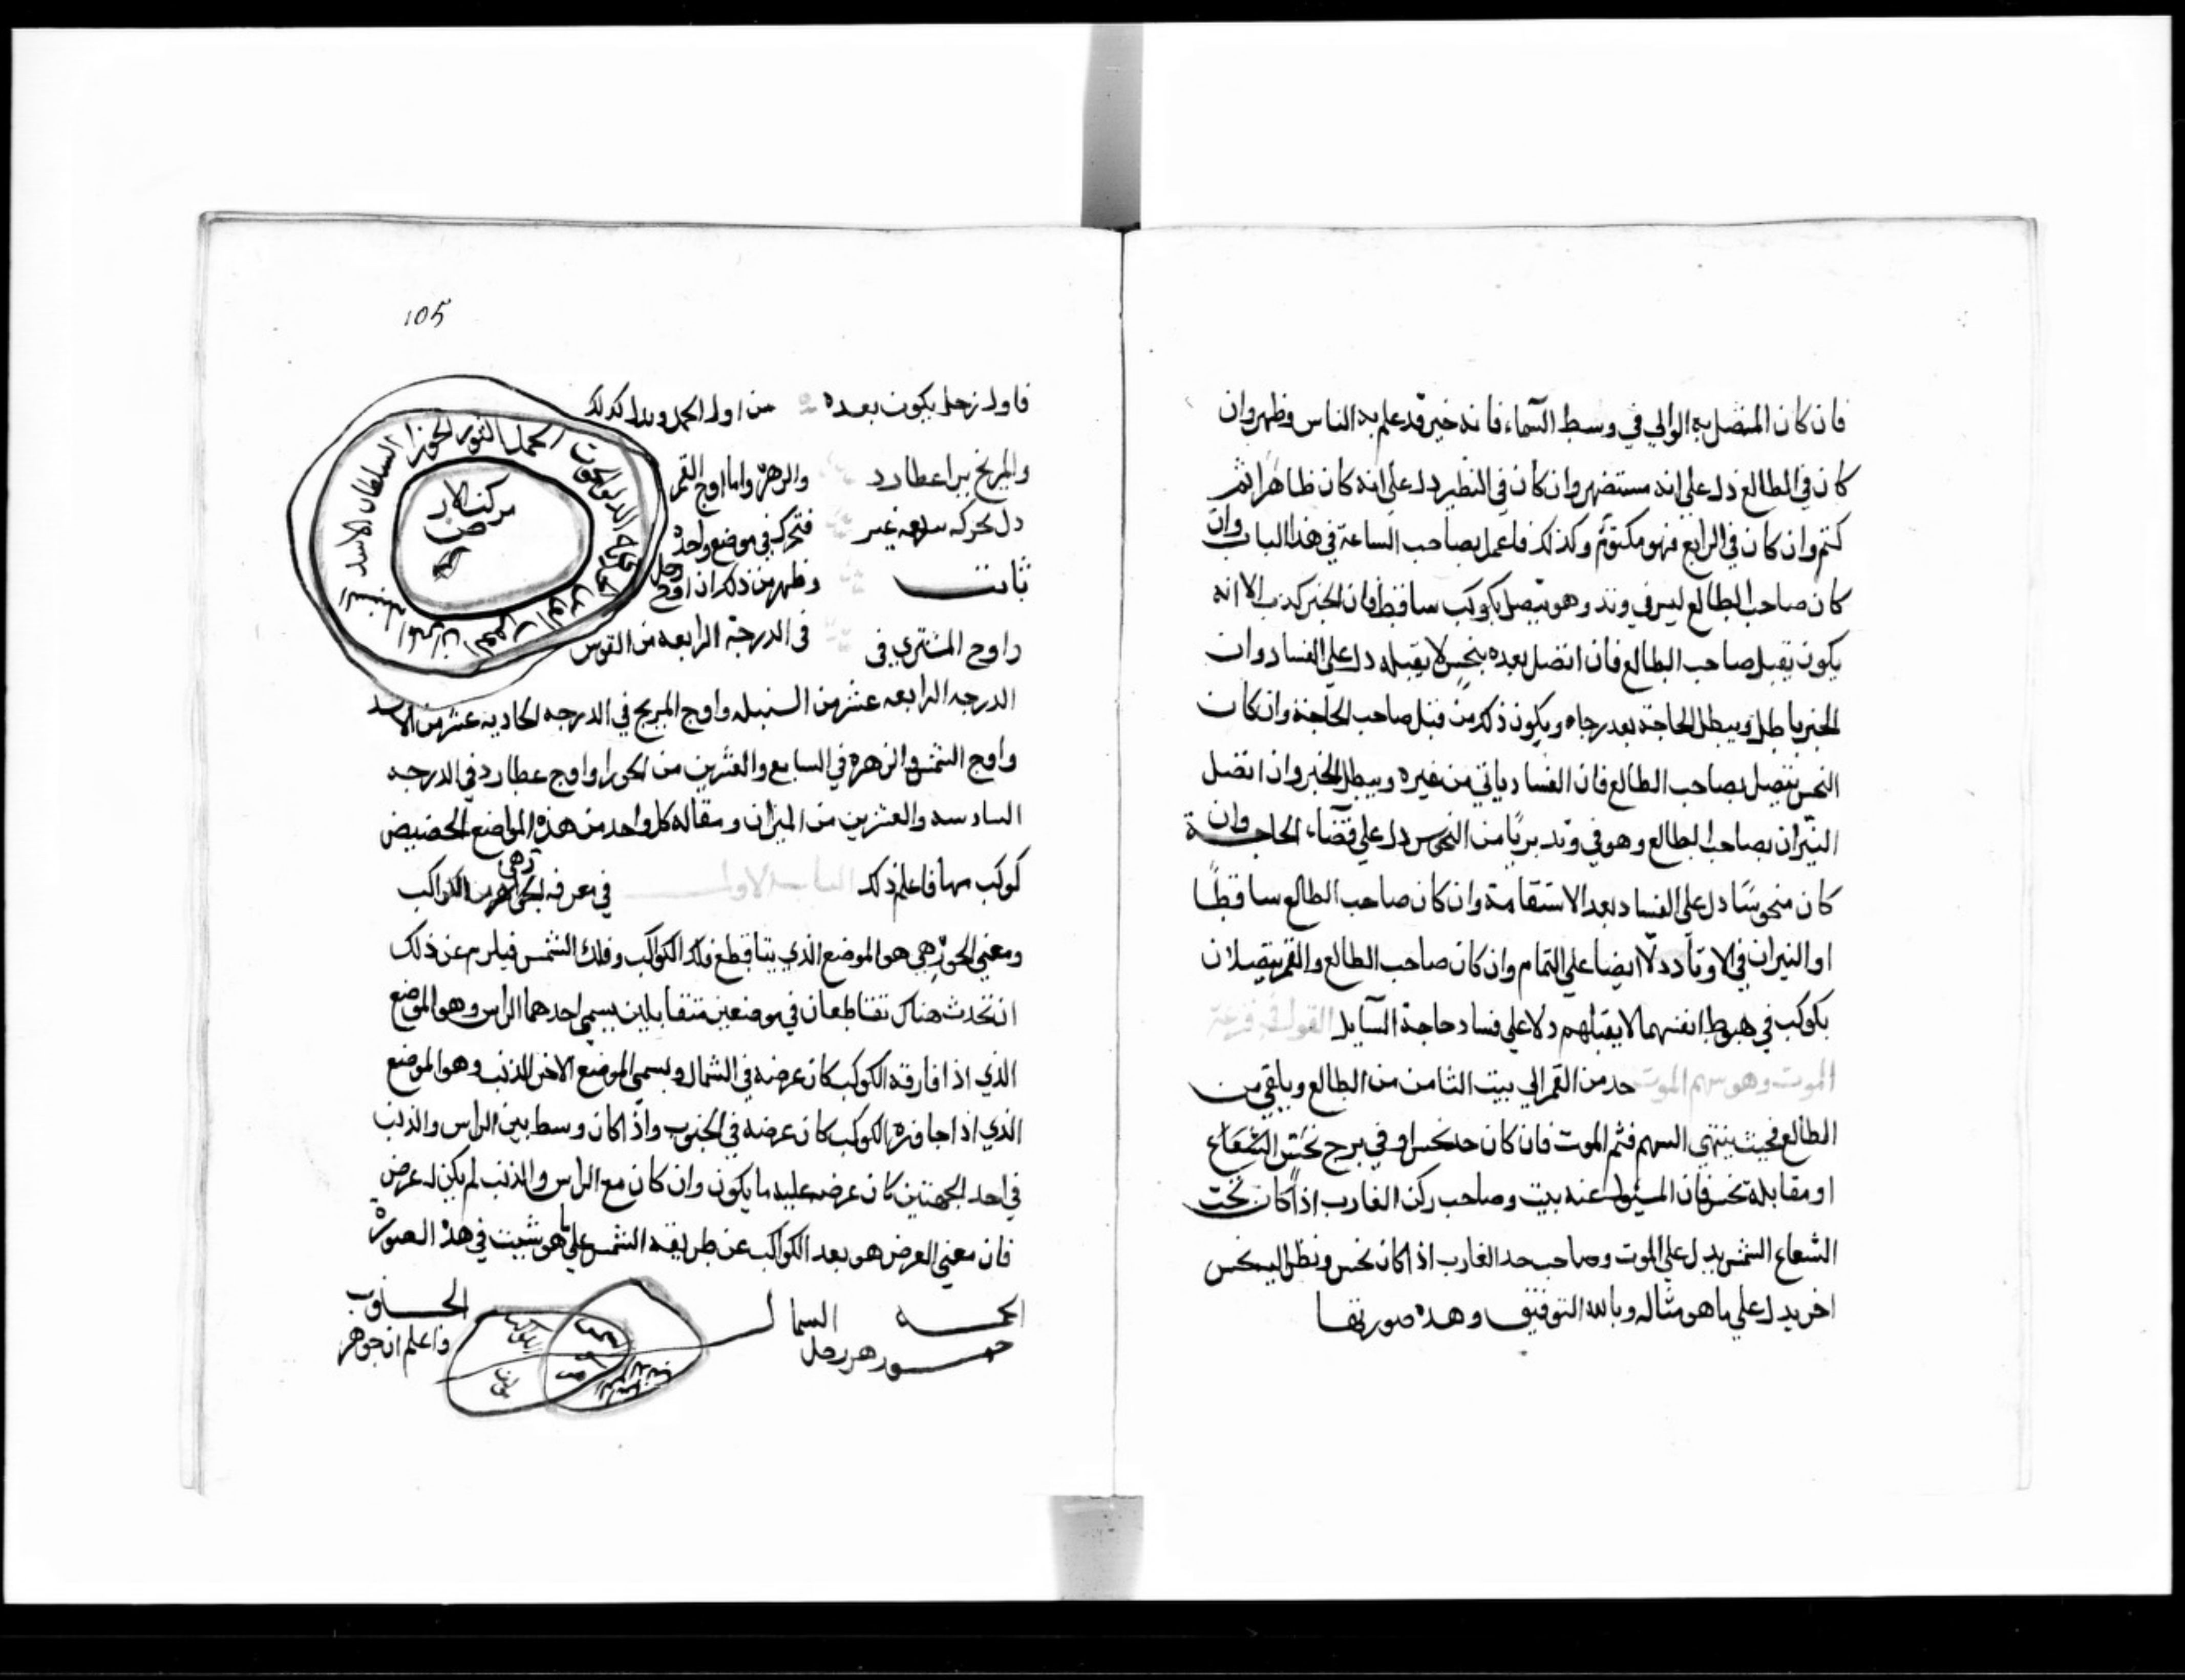 فان كان المتصل به الوالي في وسط السماء فانه خبر قد علم به الناس وظهر وان
كان في الطالع دل علي انه مستضهر وان كان في النظير دل علي انه كان ظاهرا ثم
كتم وان كان في الرابع فهو مكتوم وكذلك فاعمل بصاحب الساعة في هذا الباب وان
كان صاحب الطالع ليس في وتد وهو يتصل بكوكب ساقط فان الخبر كذب الا انه
يكون يقبل صاحب الطالع فان اتصل بعده بنحس لا يقبله دل علي الفساد وان
الخبر باطل ويبطل الحاجة بعد رجاه ويكون ذلك من قبل صاحب الحاجة وان كان
النحس يتصل بصاحب الطالع فان الفساد ياتي من غيره ويبطل الخبر وان اتصل
النيران بصاحب الطالع وهو في وتد بريا من النحوس دل علي قضاء الحاجة وان
كان منحوسا دل علي الفساد بعد الاستقامة وان كان صاحب الطالع ساقطا
او النيران في الاوتاد دلا ايضا علي التمام وان كان صاحب الطالع والقمر يتصلان
بكوكب في هبوط انفسهما لا يقبلهم دلا علي فساد حاجة السايل القول في قرعة
الموت وهو سهم الموت حد من القمر الي بيت الثامن من الطالع ويلقي من
الطالع فحيث ينتهي السهم فثم الموت فان كان حد نحس او في برج نحس الشعاع
او مقابلة نحس فان المسئول عنه بيت وصاحب ركن الغارب اذا كان تحت
الشعاع الشمس يدل علي الموت وصاحب حد الغارب اذا كان نحس ونظر اليه نحس
اخر يدل علي ما هو مثاله وبالله التوفيق وهذه صورتها
105
فاول زحل يكون بعده من اول الحمل وبدا كذلك
والمريخ بين اعطارد والزهرة واما اوج القمر
دل لحركه سريعه غير فتحرك في موضع واحد
ثابت وظهر من ذلك ان اوج زحل
في الدرجة الرابعه من القوس
واوج المشتري في
الحمل الثور الجوزا السلطان الاسد السنبله الميزان العقرب القوس الجدي الدلو الحوت
مركز الارض
الدرجه الرابعه عشر من السنبله واوج المريخ في الدرجه الحاديه عشر من الاسد
واوج الشمس والزهره في السابع والعشرين من الجوزا واوج عطارد في الدرجه
السادسه والعشرين من الميزان ومقاله كل واحد من هذه المواضع الحضيض
كوكب منها فاعلم ذلك الباب الاول في معرفه الجواهر من الكواكب
ومعني الجوزهر هو الموضع الذي يتقاطع فلك الكواكب وفلك الشمس فيلزم عن ذلك
ان تحدث هناك تقاطعان في موضعين متقابلين يسمي احدهما الراس وهو الموضع
الذي اذا فارقه الكوكب كان عرضه في الشمال ويسمي الموضع الاخر الذنب وهو الموضع
الذي اذا جاوزه الكوكب كان عرضه في الجنوب واذا كان وسط بين الراس والذنب
في احد الجهتين كان عرضه عليه ما يكون وان كان مع الراس والذنب لم يكن له عرض
فان معني العرض هو بعد الكواكب عن طريقه الشمس علي ما هو شبت في هذه الصورة
الجـــه السما الجـــنوب
جـــوزهر زحل واعلم ان جوهر